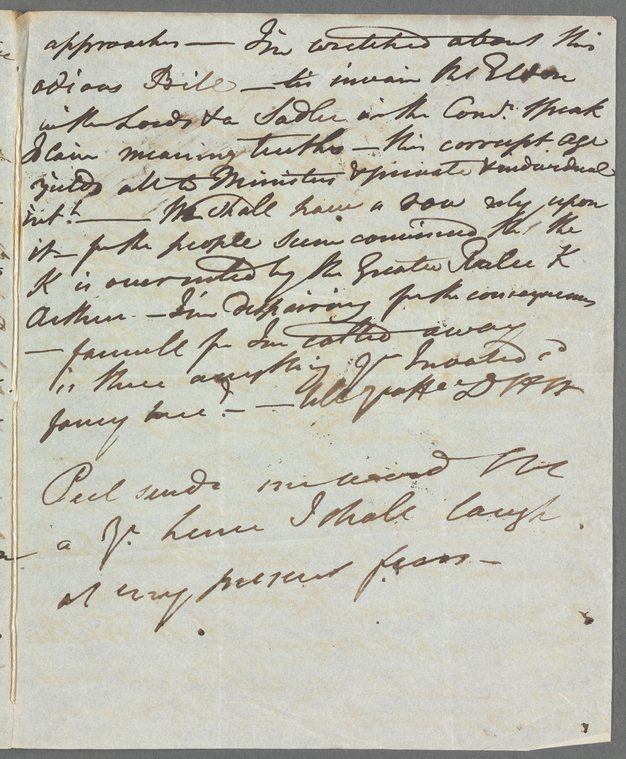 approaches — I'm wretched about this
odious Bill — tis invain Ld Eldon
in the Lords & a Sadler in the Com.s speak
plain meaning truths — this corrupt age
yields all to Ministers & private & individual
int.t — We shall have a row rely upon
it — for the people seem convinced that the
K is overruled by the Greater Ruler K
Arthur — I'm despairing for the consequences
— farewell for I'm called away
is there anything yr Invalid cd
fancy here? —
Peel sends me word that
a yr. hence I shall laugh
at my present fears —